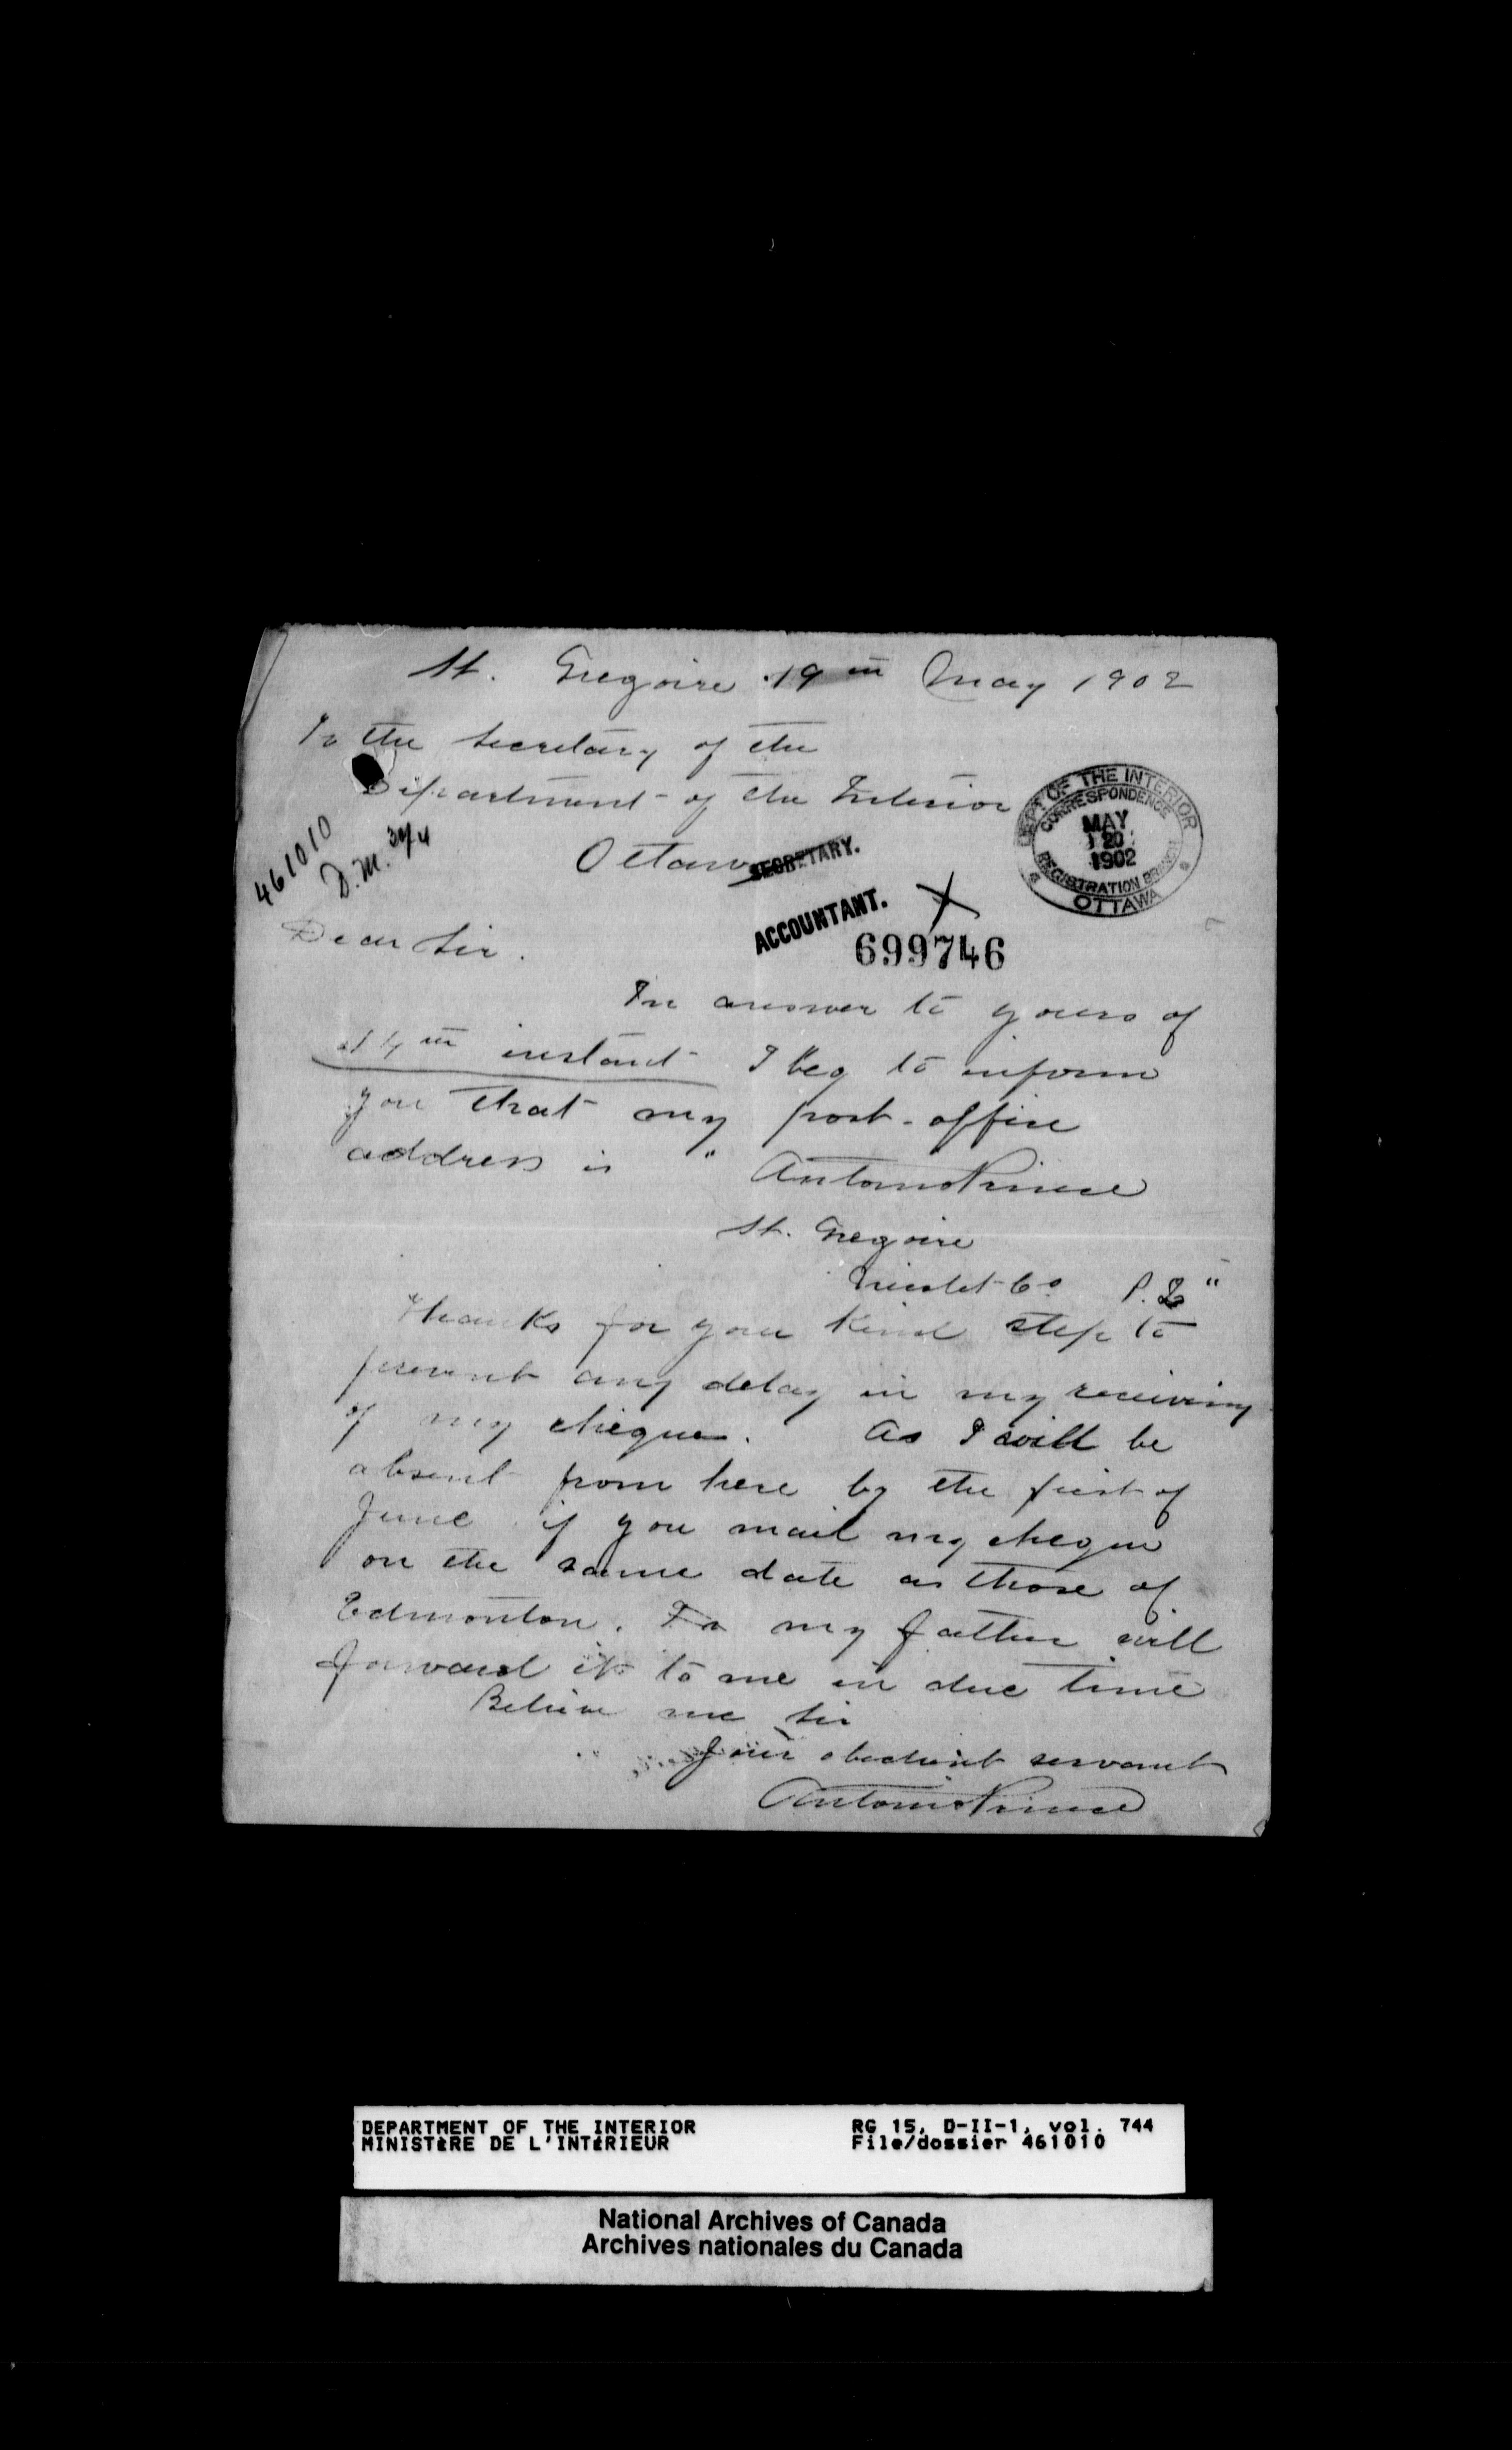 St. Gregoire 19th May 1902
To the Secretary of the
Department of the Interior
Ottawa
SECRETARY.
DEPT OF THE INTERIOR
CORRESPONDENCE
MAY
20
1902
REGISTRATION BRANCH
OTTAWA
461010
D.M.
ACCOUNTANT.
699746
Dear Sir.
In answer to yours of
14th instant I beg to inform
you that my post-office
address is " Antonio Prince
St. Gregoire
Nicolet Co P.Q"
Thanks for your kind step to
prevent any delay in my receiving
of my cheque. As I will be
absent from here by the first of
June if you mail my cheque
on the same date as those of
Edmonton. my father will
forward it to me in due time
Believe me Sir
Your obedient servant
Antonio Prince
DEPARTMENT OF THE INTERIOR RG 15, D-II-1, vol. 744
MINISTÈRE DE L'INTÉRIEUR File/dossier 461010
National Archives of Canada
Archives nationales du Canada